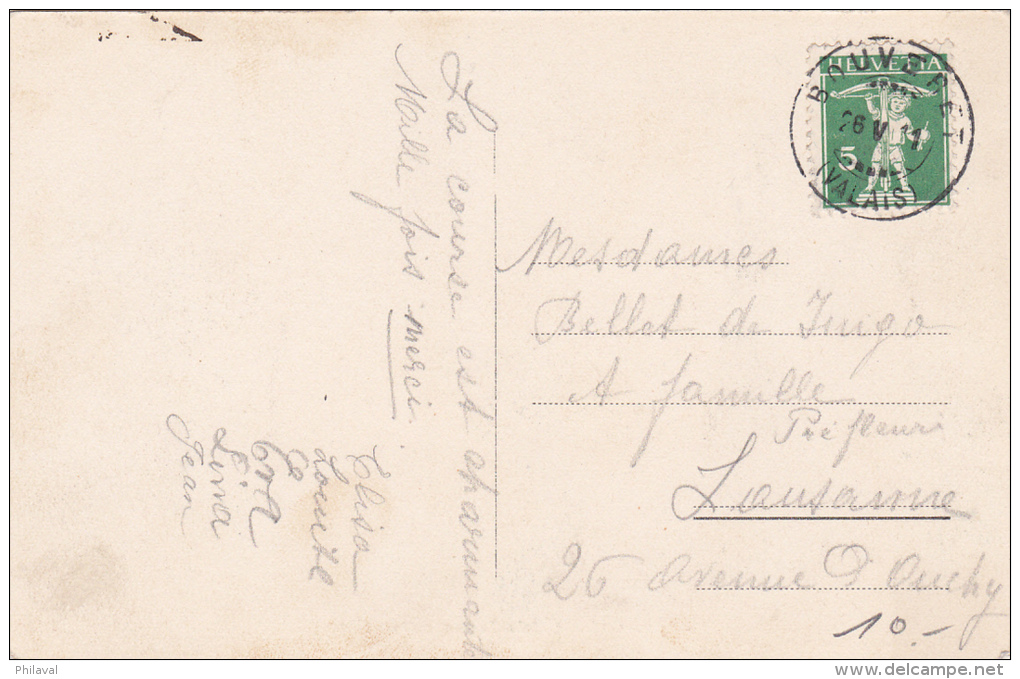 La course est charmante
Mille fois merci.
Elisa
Louise
Eva
Lina
Jean
HELVETIA
5
BOUVERET
26 V 11
(VALAIS)
Mesdames
Bellet de Inigo
A famille
Préfleuri
Lausanne
26 Avenue d'Ouchy
10.-
Philaval
www.delcampe.net